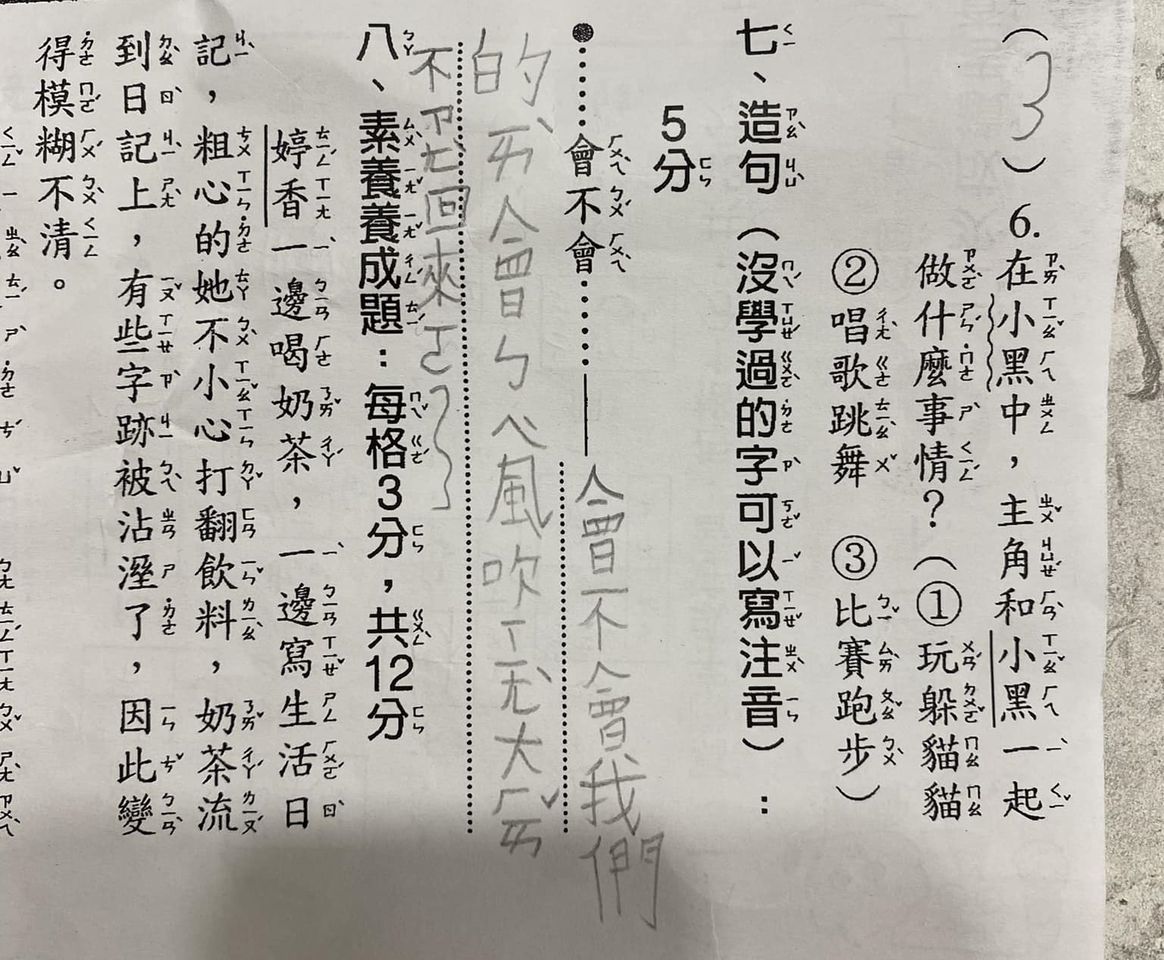 （3）6.在小黑中，主角和小黑一起
做什麼事情？（①玩躲貓貓
②唱歌跳舞　③比賽跑步）
七、造句（沒學過的字可以寫注音）：
5分
●……會不會……——會不會我們
的ㄞˋ會ㄅㄟ風吹ㄒㄧㄤˋ大ㄏㄞˇ
不ㄗㄞ回來ㄛ？
八、素養養成題：每格3分，共12分
婷香一邊喝奶茶，一邊寫生活日
記，粗心的她不小心打翻飲料，奶茶流
到日記上，有些字跡被沾溼了，因此變
得模糊不清。